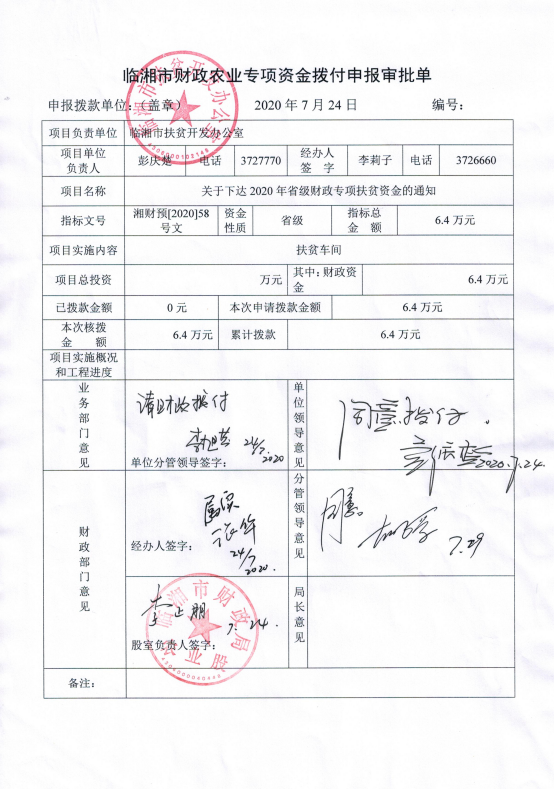 临湘市财政农业专项资金拨付申报审批单
申报拨款单位：（盖章） 2020 年 7 月 24 日 编号：
项目负责单位 临湘市扶贫开发办公室
项目单位负责人 彭庆楚 电话 3727770 经办人签 字 李莉子 电话 3726660
项目名称 关于下达 2020 年省级财政专项扶贫资金的通知
指标文号 湘财预[2020]58号文 资金性质 省级 指标总金 额 6.4 万元
项目实施内容 扶贫车间
项目总投资 万元 其中: 财政资金 6.4 万元
已拨款金额 0 元 本次申请拨款金额 6.4 万元
本次核拨金 额 6.4 万元 累计拨款 6.4 万元
项目实施概况和工程进度
业务部门意见 请财政拨付 24/7 2020 单位分管领导签字：
单位领导意见 同意拨付. 2020.7.24.
财政部门意见 属实 24/7 2020. 经办人签字：
分管领导意见 同意. 7.29
李正朋 7.24. 股室负责人签字：
局长意见
备注：
临湘市扶贫开发办公室
临湘市财政局
农业股